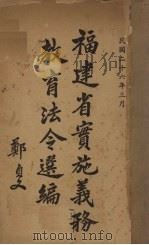 民國二十六年三月
福建省實施義務
教育法令選編
鄭貞文